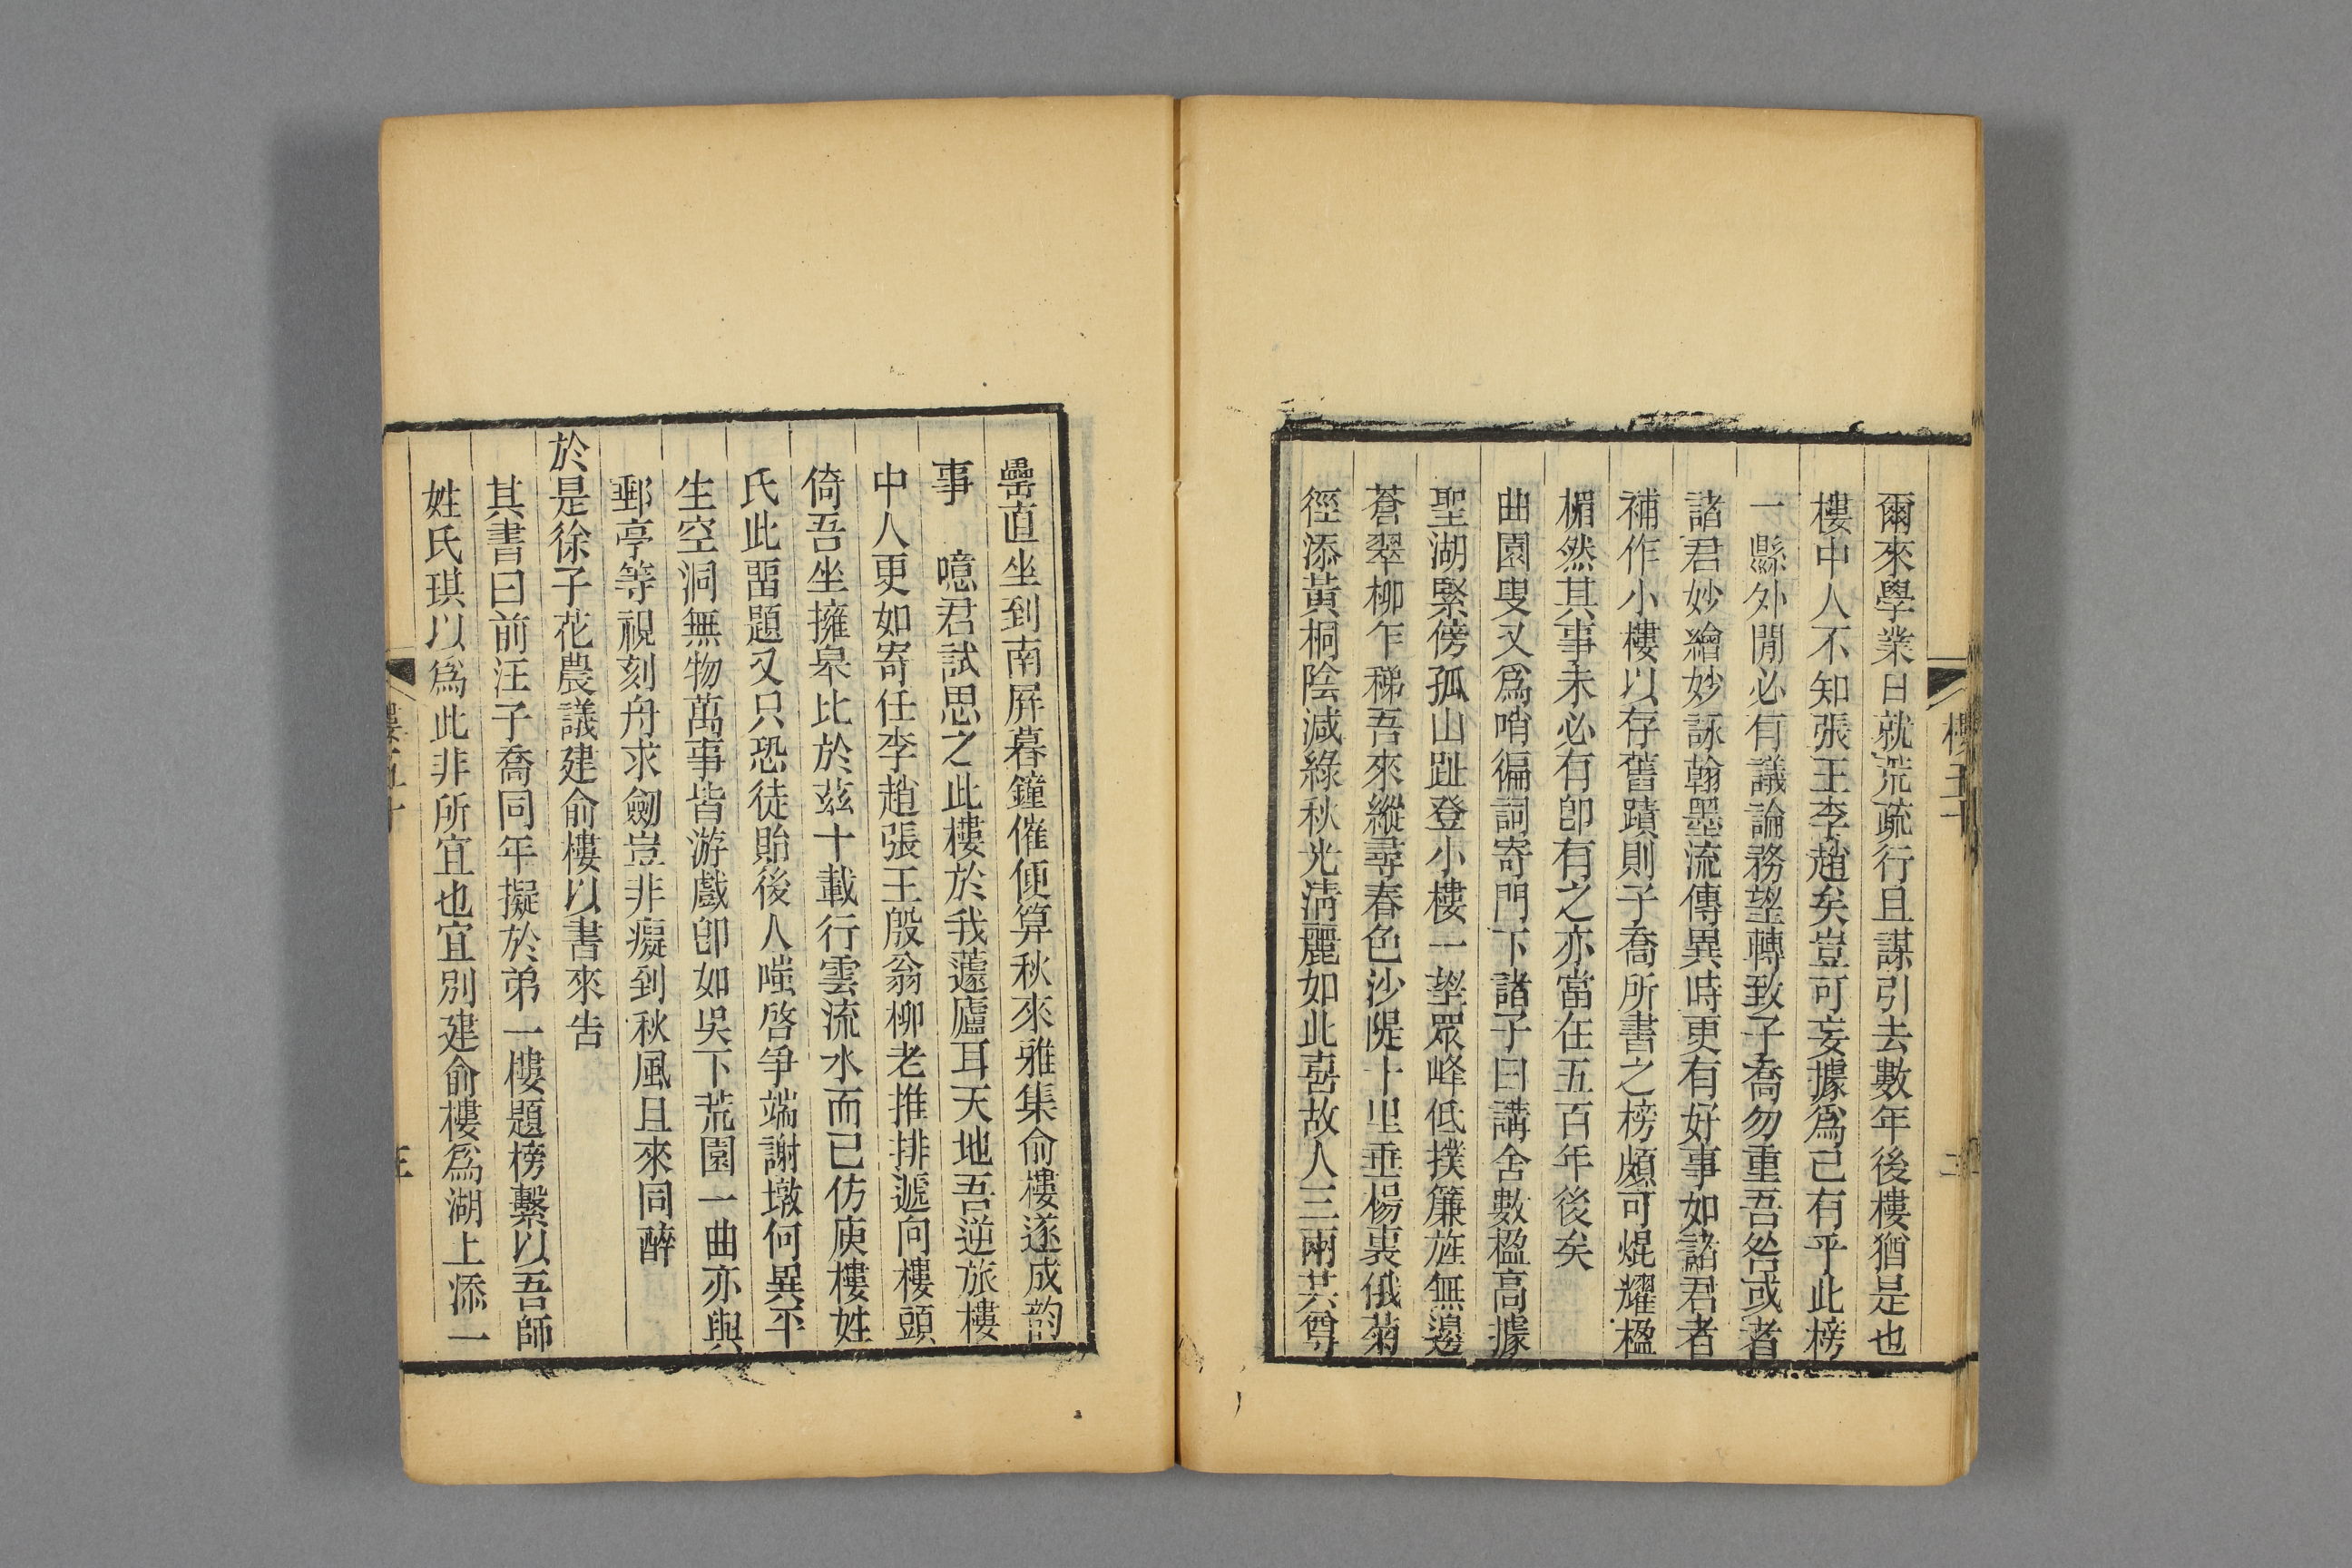 爾來學業日就荒疏行且謀引去數年後樓猶是也
樓中人不知張王李趙矣豈可妄據爲己有乎此榜
一縣外閒必有議論務望轉致子喬勿重吾咎或者
諸君妙繪妙詠翰墨流傳異時更有好事如諸君者
補作小樓以存舊蹟則子喬所書之榜頗可焜耀楹
楣然其事未必有卽有之亦當在五百年後矣
曲園叟又爲哨徧詞寄門下諸子曰講舍數楹高據
聖湖緊傍孤山趾登小樓一望眾峰低撲簾旌無邊
蒼翠柳乍稊吾來縱尋春色沙隄十里垂楊裏俄菊
徑添黃桐陰減綠秋光淸麗如此喜故人三兩共尊
樓五十
二
罍直坐到南屏暮鐘催便算秋來雅集俞樓遂成韵
事　噫君試思之此樓於我蘧廬耳天地吾逆旅樓
中人更如寄任李趙張王殷翁柳老推排遞向樓頭
倚吾坐擁皋比於茲十載行雲流水而已仿庾樓姓
氏此畱題又只恐徒貽後人嗤啓爭端謝墩何異平
生空洞無物萬事皆游戲卽如吳下荒園一曲亦與
郵亭等視刻舟求劒豈非癡到秋風且來同醉
於是徐子花農議建俞樓以書來告
其書曰前汪子喬同年擬於弟一樓題榜繫以吾師
姓氏琪以爲此非所宜也宜別建俞樓爲湖上添一
樓五十
三